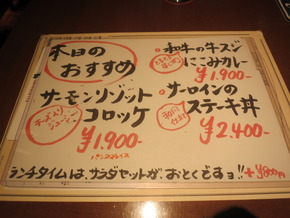 本日の
おすすめ
サーモンリゾット
コロッケ
¥1,900-
パンスライス
・和牛の牛スジ
にこみカレー
¥1,900-
・サーロインの
ステーキ丼
¥2,400-
ランチタイムは、サラダセットが、おとくですョ!! +¥800円